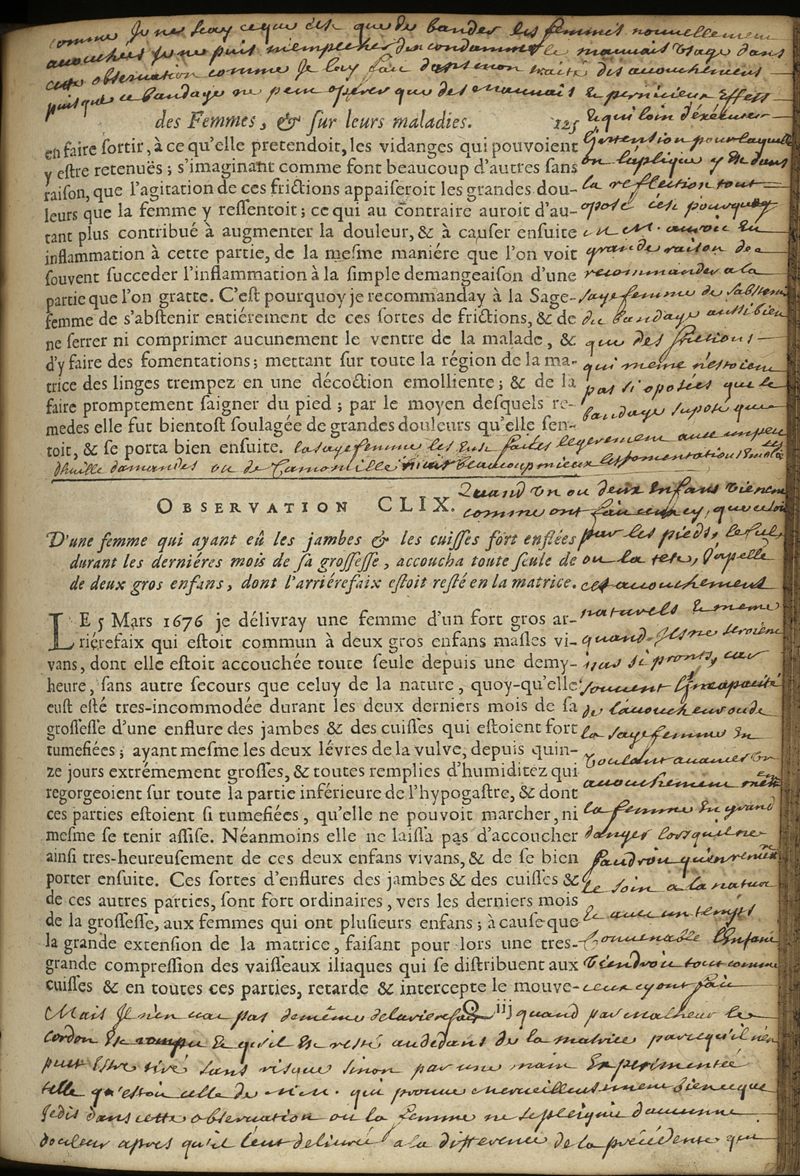 comme Je ne scay ce que c'est que de bander les femmes nouvellement
accouchees Je ne puis m'empecher de condamner le mauvais usage dans
cette observation comme Je l'ay fait dans mon traité des accouchements
puisque ce bandage ne peut operer que des mauvais & pernicieux effets
des Femmes, & sur leurs maladies. 125
& qui loin d'éxécuter
l'intention pour laquelle
on l'aplique y est dans
la reflection tout
oposé c'est pourquoy
en faire sortir, à ce qu'elle pretendoit, les vidanges qui pouvoient
y estre retenuës ; s'imaginant comme font beaucoup d'autres sans
raison, que l'agitation de ces frictions appaiseroit les grandes dou-
leurs que la femme y ressentoit ; ce qui au contraire auroit d'au-
tant plus contribué à augmenter la douleur, & à causer ensuite
inflammation à cette partie, de la mesme maniére que l'on voit
souvent succeder l'inflammation à la simple demangeaison d'une
partie que l'on gratte. C'est pourquoy je recommanday à la Sage-
femme de s'abstenir entiérement de ces sortes de frictions, & de
ne serrer ni comprimer aucunement le ventre de la malade, &
d'y faire des fomentations ; mettant sur toute la région de la ma-
trice des linges trempez en une décoction emolliente ; & de la
faire promptement saigner du pied ; par le moyen desquels re-
medes elle fut bientost soulagée de grandes douleurs qu'elle sen-
toit, & se porta bien ensuite.
grande raison de
recommander a la
sage femme de sabstenir
du bandage aussi bien
que des frictions
qui meme n'estoient
pas si oposées que le
bandage suposé que
la sage femme les eut faites legerement avec un peu
d'huille damandes ou de Camomille
beaucoup mieux les fomentations
OBSERVATION CLIX.
D'une femme qui ayant eû les jambes & les cuisses fort enflées
durant les derniéres mois de sa grossesse, accoucha toute seule de
de deux gros enfans, dont l'arriérefaix estoit resté en la matrice.
LE 5 Mars 1676 je délivray une femme d'un fort gros ar-
riérefaix qui estoit commun à deux gros enfans masles vi-
vans, dont elle estoit accouchée toute seule depuis une demy-
heure, sans autre secours que celuy de la nature, quoy-qu'elle
eust esté tres-incommodée durant les deux derniers mois de sa
grossesse d'une enflure des jambes & des cuisses qui estoient fort
tumefiées ; ayant mesme les deux lévres de la vulve, depuis quin-
ze jours extrémement grosses, & toutes remplies d'humiditez qui
regorgeoient sur toute la partie inférieure de l'hypogastre, & dont
ces parties estoient si tumefiées, qu'elle ne pouvoit marcher, ni
mesme se tenir assise. Néanmoins elle ne laissa pas d'accoucher
ainsi tres-heureusement de ces deux enfans vivans, & de se bien
porter ensuite. Ces sortes d'enflures des jambes & des cuisses &
de ces autres parties, sont fort ordinaires, vers les derniers mois
de la grossesse, aux femmes qui ont plusieurs enfans ; à cause que
la grande extension de la matrice, faisant pour lors une tres-
grande compression des vaisseaux iliaques qui se distribuent aux
cuisses & en toutes ces parties, retarde & intercepte le mouve-
Q iij
Quand un ou deux Enfans vienent
comme ont fait ceux cy, que ce soit
par les pieds, le cul,
ou la tete, J'apelle
ces accouchement
naturels & meme
quand Ils ne seroient
pas si pronts, car
souvent l'incapacité
de l'acoucheur ou de
la sage femme En
voulant avancer un
accouchement mett
la femme En grand
danger lorsqu'il ne
faudroit qu'en remettre
le soin a la nature
& avec un temps
Convenable l'Enfant
viendroit tout comme
ceux cy ont fait
Mais Il n'en vat pas de même de larierefaix quand par malheur le
Cordon Est rompu & qu'il Est resté au dedans de la matrice parcequ'il n'en
peut Estre tiré sans risque sinon par une main Experimentée
telle qu'estoit celle de M. qui prouve merveilleusement bien ce que
Je dis dans cette observation ou la femme ne se pleignit daucune
douleur apres qu'il l'eut delivrée a la difference de la précédente qui